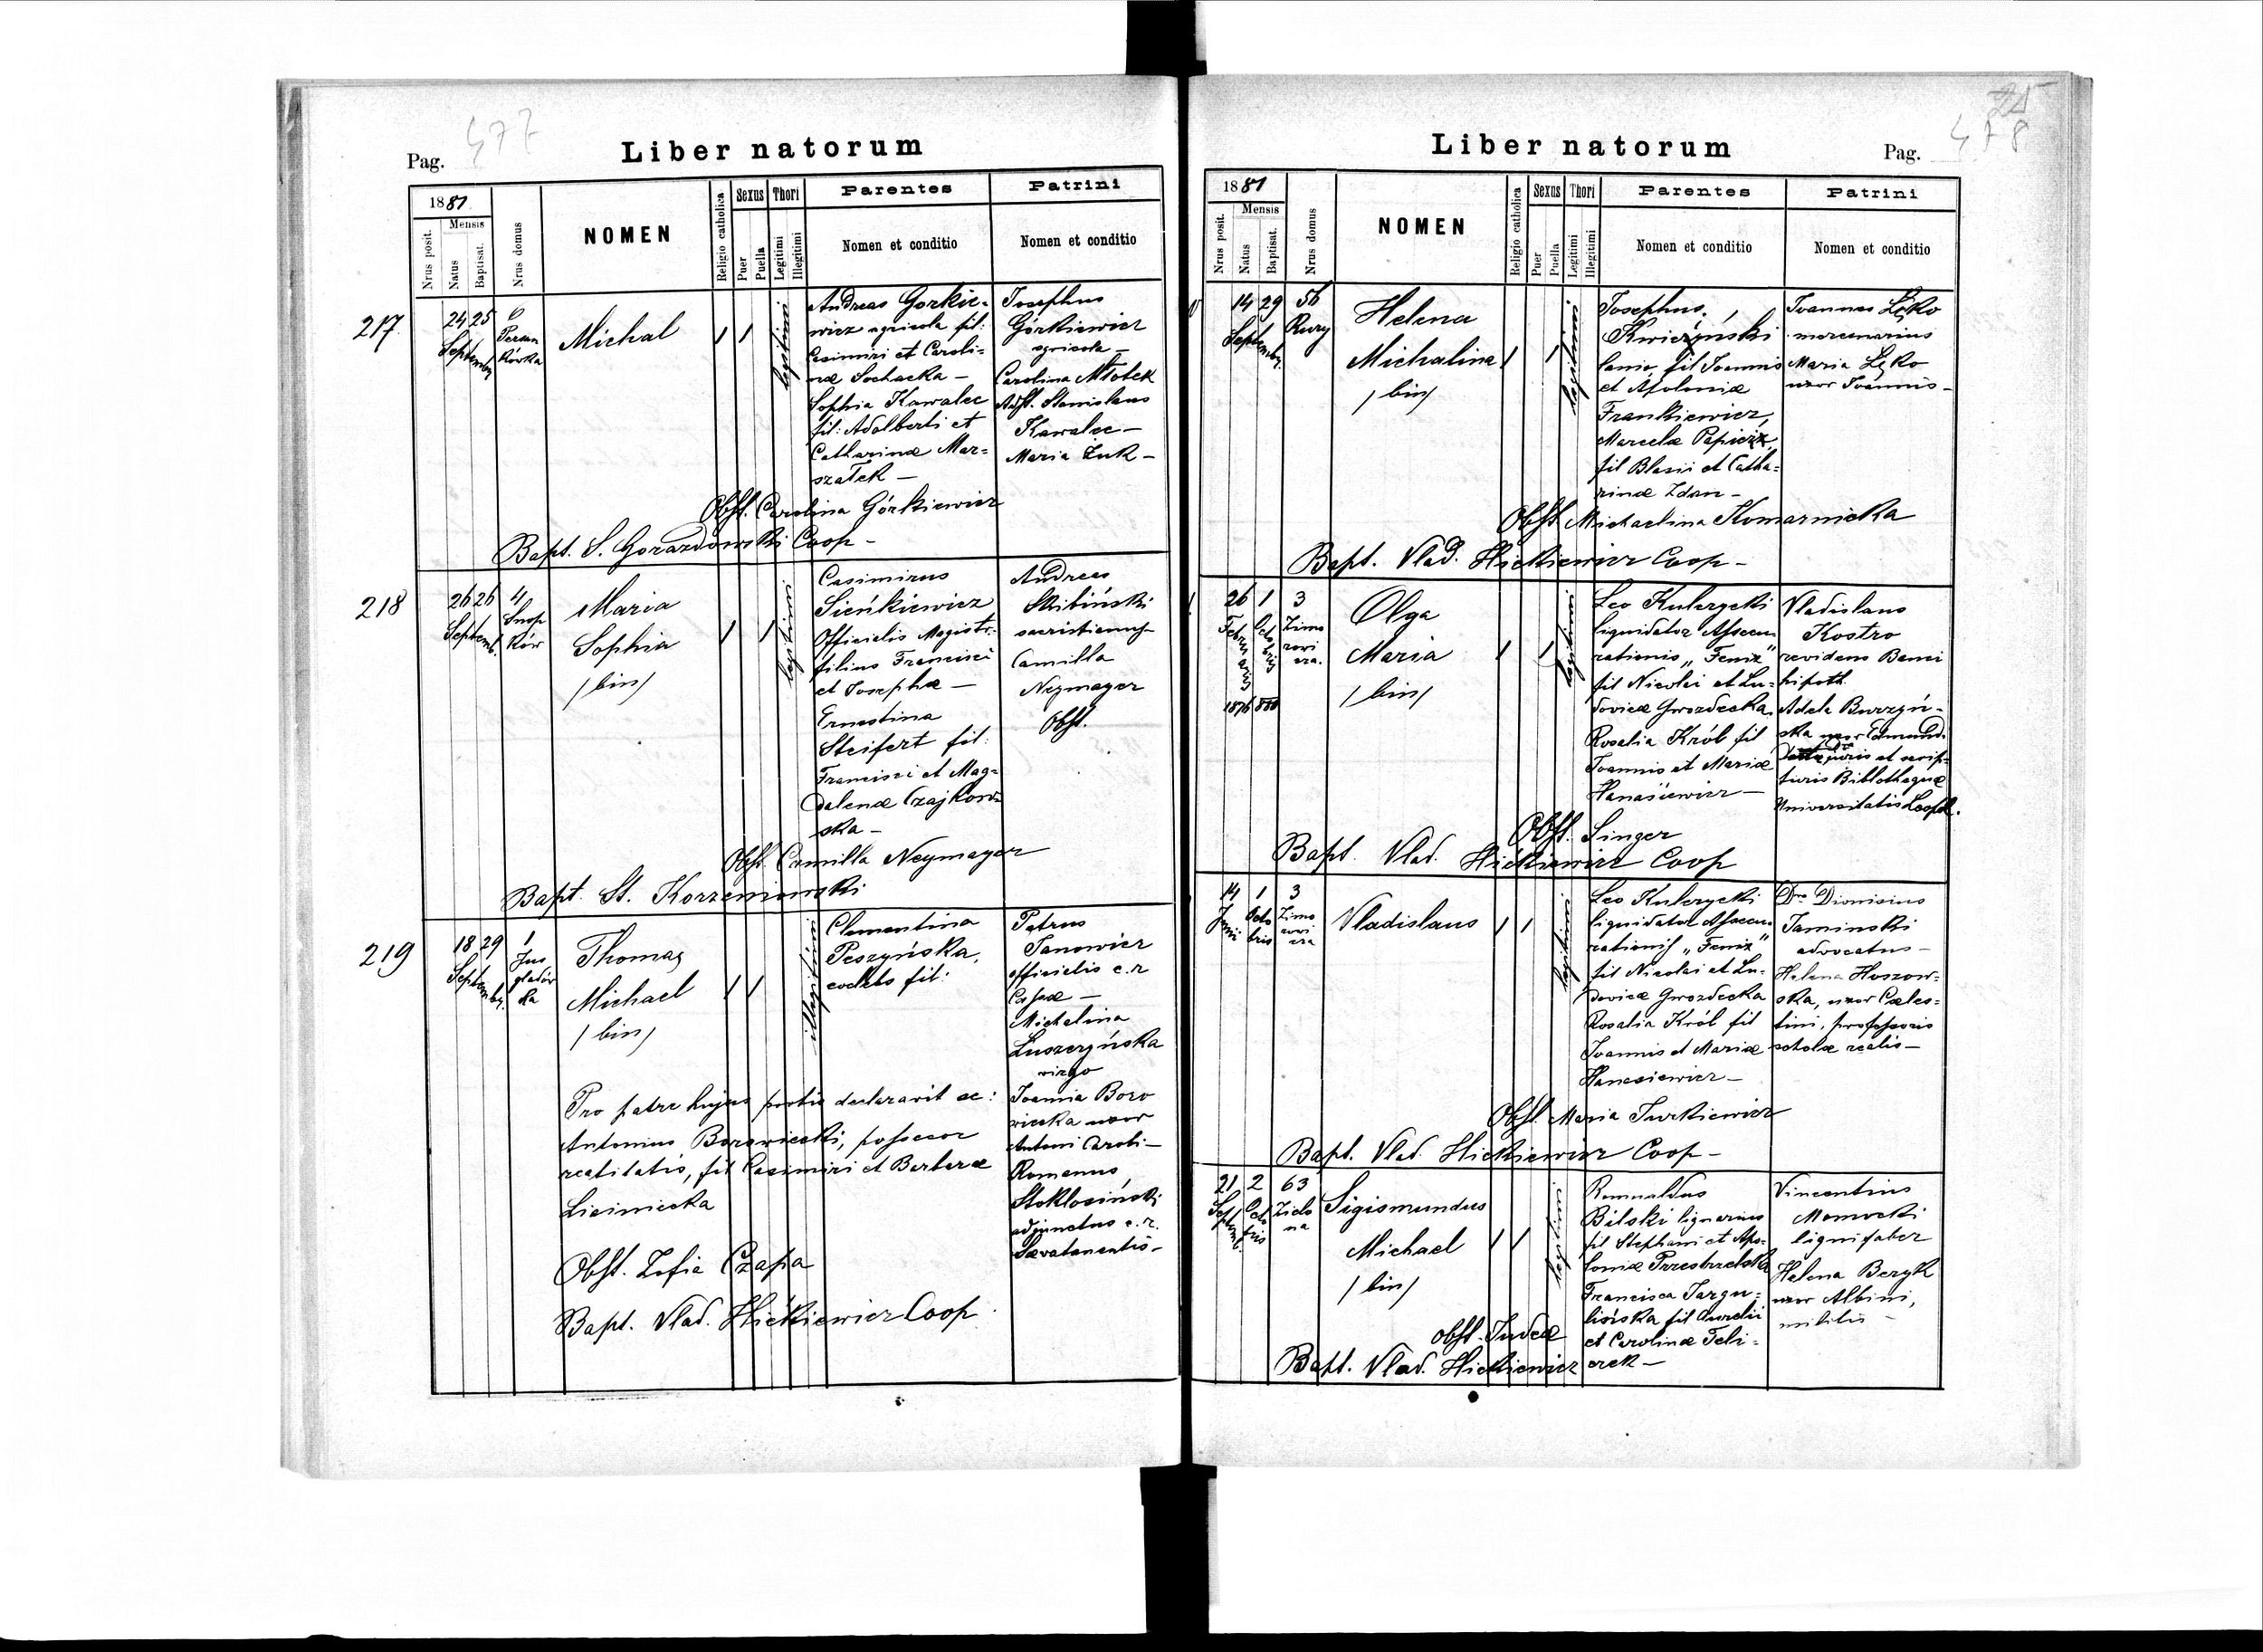 477
Pag.
Liber natorum
1881
Mensis
Nrus posit.
Natus
Baptisat.
Nrus domus
NOMEN
Religio catholica
Sexus
Puer
Puella
Thori
Legitimi
Illegitimi
Parentes
Nomen et conditio
Patrini
Nomen et conditio
217.
24 25
Septemb.
6
Persen
kówka
Michal
legitimi
Andreas Gorkie-
wicz agricola fil:
Casimiri et Caroli-
næ Sochacka —
Sophia Kawalec
fil: Adalberti et
Catharinæ Mar-
szałek —
Josephus
Górkiewicz
agricola —
Carolina Młotek
Adst. Stanislaus
Kawalec —
Maria Żuk —
Obst. Carolina Górkiewicz
Bapt. S. Gorazdowski Coop —
218
26 26
Septemb.
4
Snop
ków
Maria
Sophia
/bin/
legitimi
Casimirus
Sieńkiewicz
Officialis Magistr.
filius Francisci
et Josephæ —
Ernestina
Steifert fil:
Francisci et Mag-
dalenæ Czajkow-
ska —
Andreas
Skibiński
sacristianus
Camilla
Neymayer
Obst.
Obst. Camilla Neymayer
Bapt. St. Korzeniowski
219
18 29
Septemb.
1
Jus
gladów
ka
Thomas
Michael
/bin/
illegitimi
Clementina
Peszyńska,
fil:
Petrus
Janowicz
officialis c.r
Cassæ —
Michalina
Łuszczyńska
virgo
Joannia Boro
wiecka uxor
Antoni Caroli —
Romanus
Stokłosiński
adjunctus c.r.
Pro patre hujus prolis declaravit se:
Antonius Borowiecki, possessor
realitatis, fil Casimiri et Barbaræ
Lisiniecka
Obst. Zofia Czapa
Bapt. Vlad. Hićkiewicz Coop.
25
478
Liber natorum
Pag.
1881
Mensis
Nrus posit.
Natus
Baptisat.
Nrus domus
NOMEN
Religio catholica
Sexus
Puer
Puella
Thori
Legitimi
Illegitimi
Parentes
Nomen et conditio
Patrini
Nomen et conditio
14 29
Septemb.
56
Rury
Helena
Michalina
/bin/
legitimi
Josephus
Kwiczyński
lanio, fil Joannis
et Apoloniæ
Frankiewicz,
Marcela Papierz,
fil Blasii et Catha-
rinæ Zdan —
Joannes Łęko
mercenarius
Maria Łęko
uxor Joannis —
Obst. Michaelina Komarnicka
Bapt. Vlad. Hićkiewicz Coop —
26 1
Octobris
1876 880
3
Zimo
rowi
cza.
Olga
Maria
/bin/
legitimi
Leo Kulczycki
liquidator Assecu-
rationis „Fenix"
fil Nicolai et Lu-
dovicæ Gwozdecka.
Rosalia Król fil
Joannis et Mariæ
Hanasiewicz —
Vladislaus
Kostro
revidens Banci
hipoth.
Adela Burzyń-
ska uxor Edmundi
juris et scrip-
turis Bibliothequæ
Universitatis Leopol.
Obst. Singer
Bapt. Vlad. Hićkiewicz Coop
14 1
Junii
Octo
bris
3
Zimo
rowi
cza
Vladislaus
legitimi
Leo Kulczycki
liquidator Assecu-
rationis „Fenix"
fil Nicolai et Lu-
dovicæ Gwozdecka
Rosalia Król fil
Joannis et Mariæ
Hanasiewicz —
Drus Dionisius
Jaminski
advocatus —
Helena Hoszow-
ska, uxor Cæles-
tini, professoris
scholæ realis —
Obst. Maria Jurkiewicz
Bapt. Vlad. Hićkiewicz Coop —
21 2
Septemb.
Octo
bris
63
Zielo
na
Sigismundus
Michael
/bin/
legitimi
Romualdus
Bilski lignarius
fil Stephani et Apo-
loniæ Przestrzelska
Francisca Targu-
lińska fil Aurelii
et Carolinæ Feli-
czek —
Vincentius
Momocki
lignifaber
Helena Bezyk
uxor Albini,
militis —
Obst. Judæ
Bapt. Vlad. Hićkiewicz